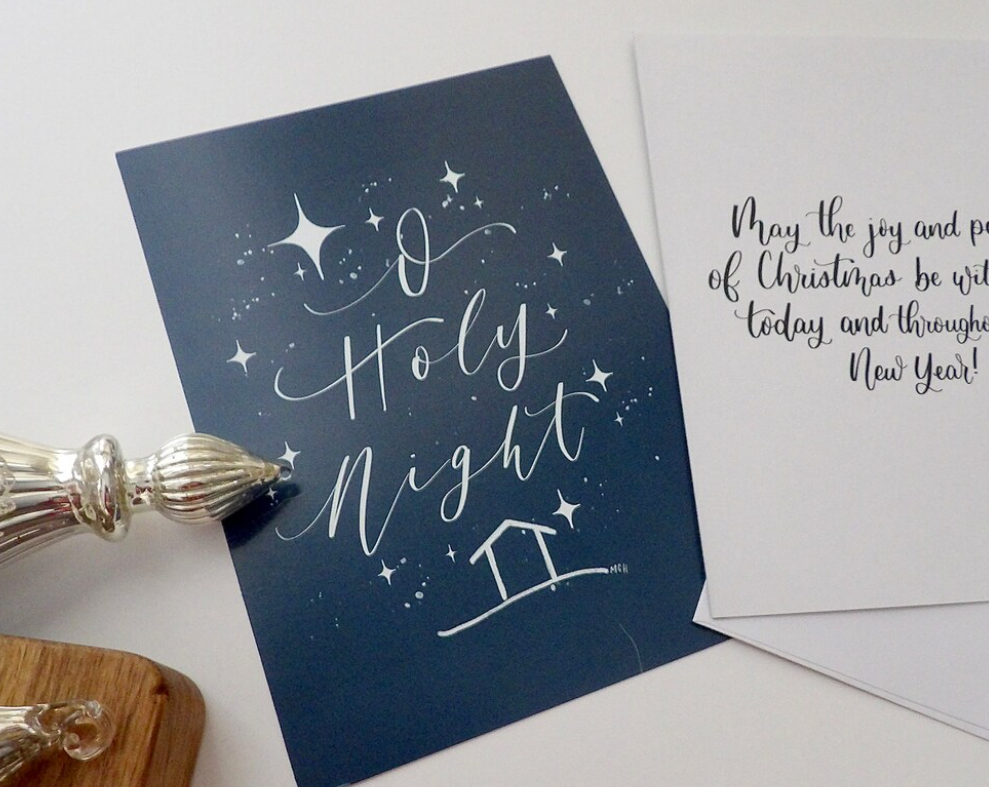 O
Holy
Night
MCH
May the joy and pe
of Christmas be wit
today and througho
New Year!